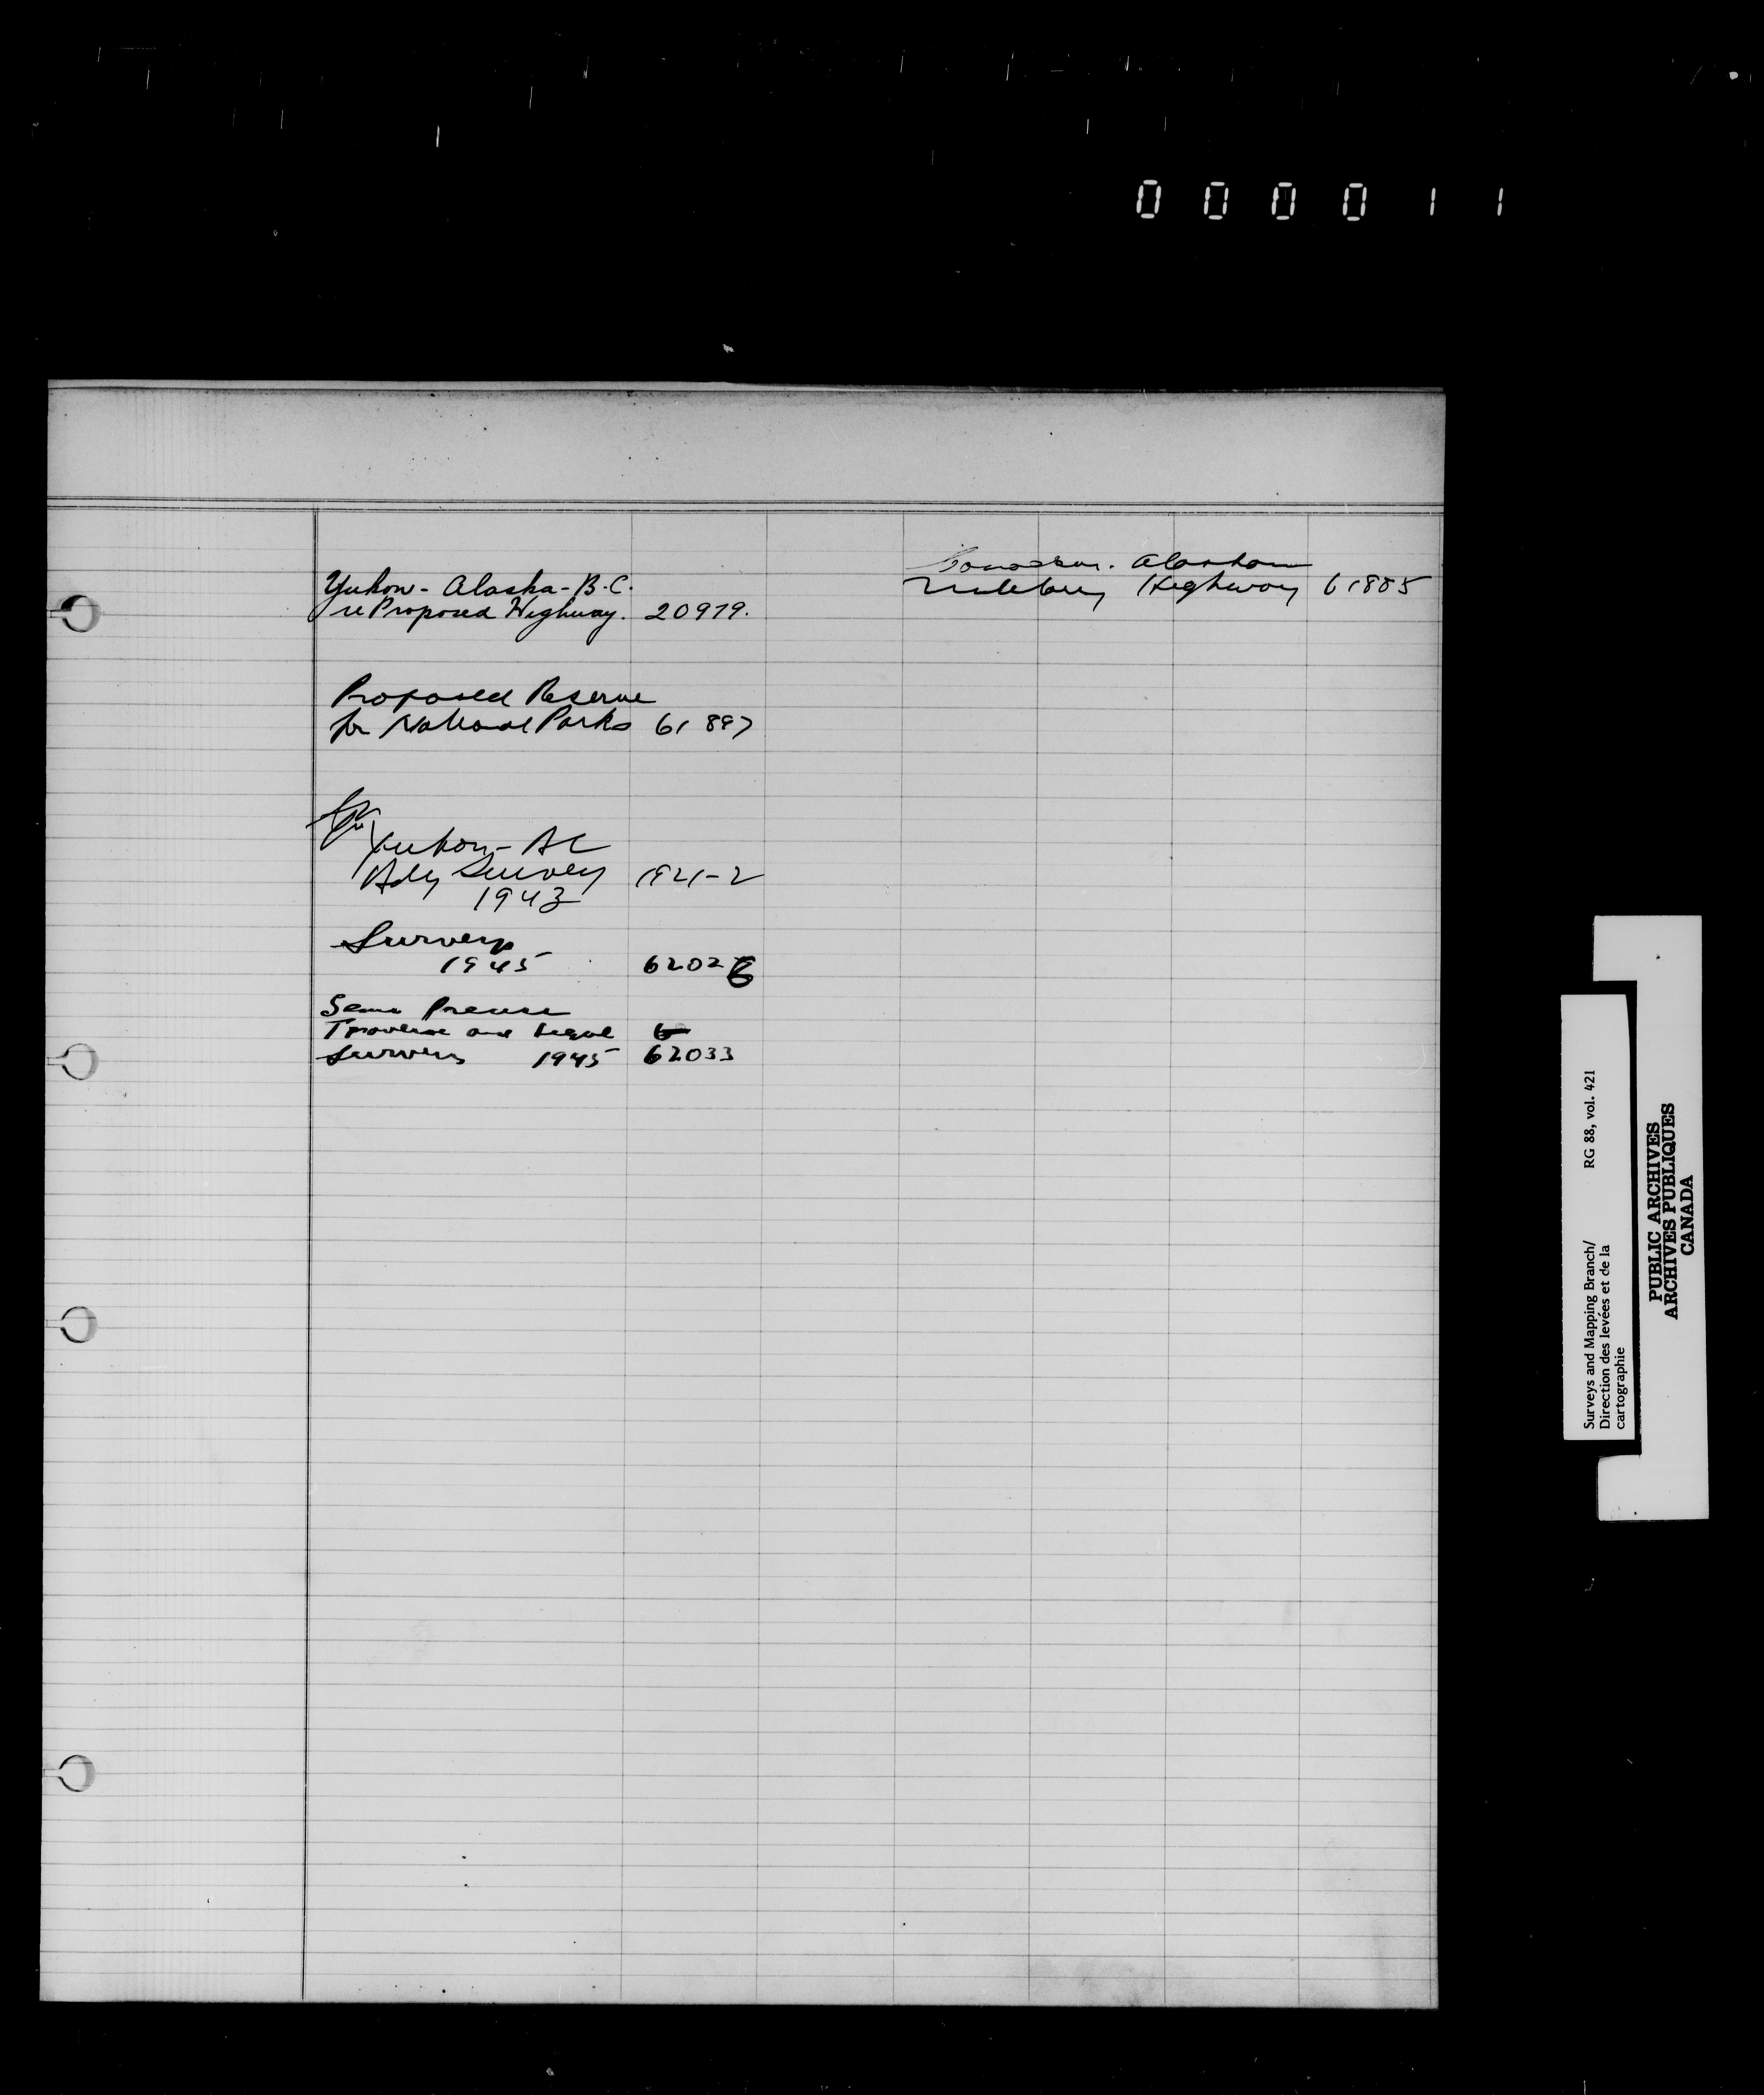 000011
Yukon - Alaska - B.C.
re Proposed Highway. 20979.
Canadian. Alaskan
Military Highway 61885
Proposed Reserve
for National Parks 61897
Yukon - BC
Bdy Survey 1921-2
1943
Surveys
1945 62026
Semi Precise
Traverse and Legal
Surveys 1945 62033
Surveys and Mapping Branch/ RG 88, vol. 421
Direction des levées et de la
cartographie
PUBLIC ARCHIVES
ARCHIVES PUBLIQUES
CANADA